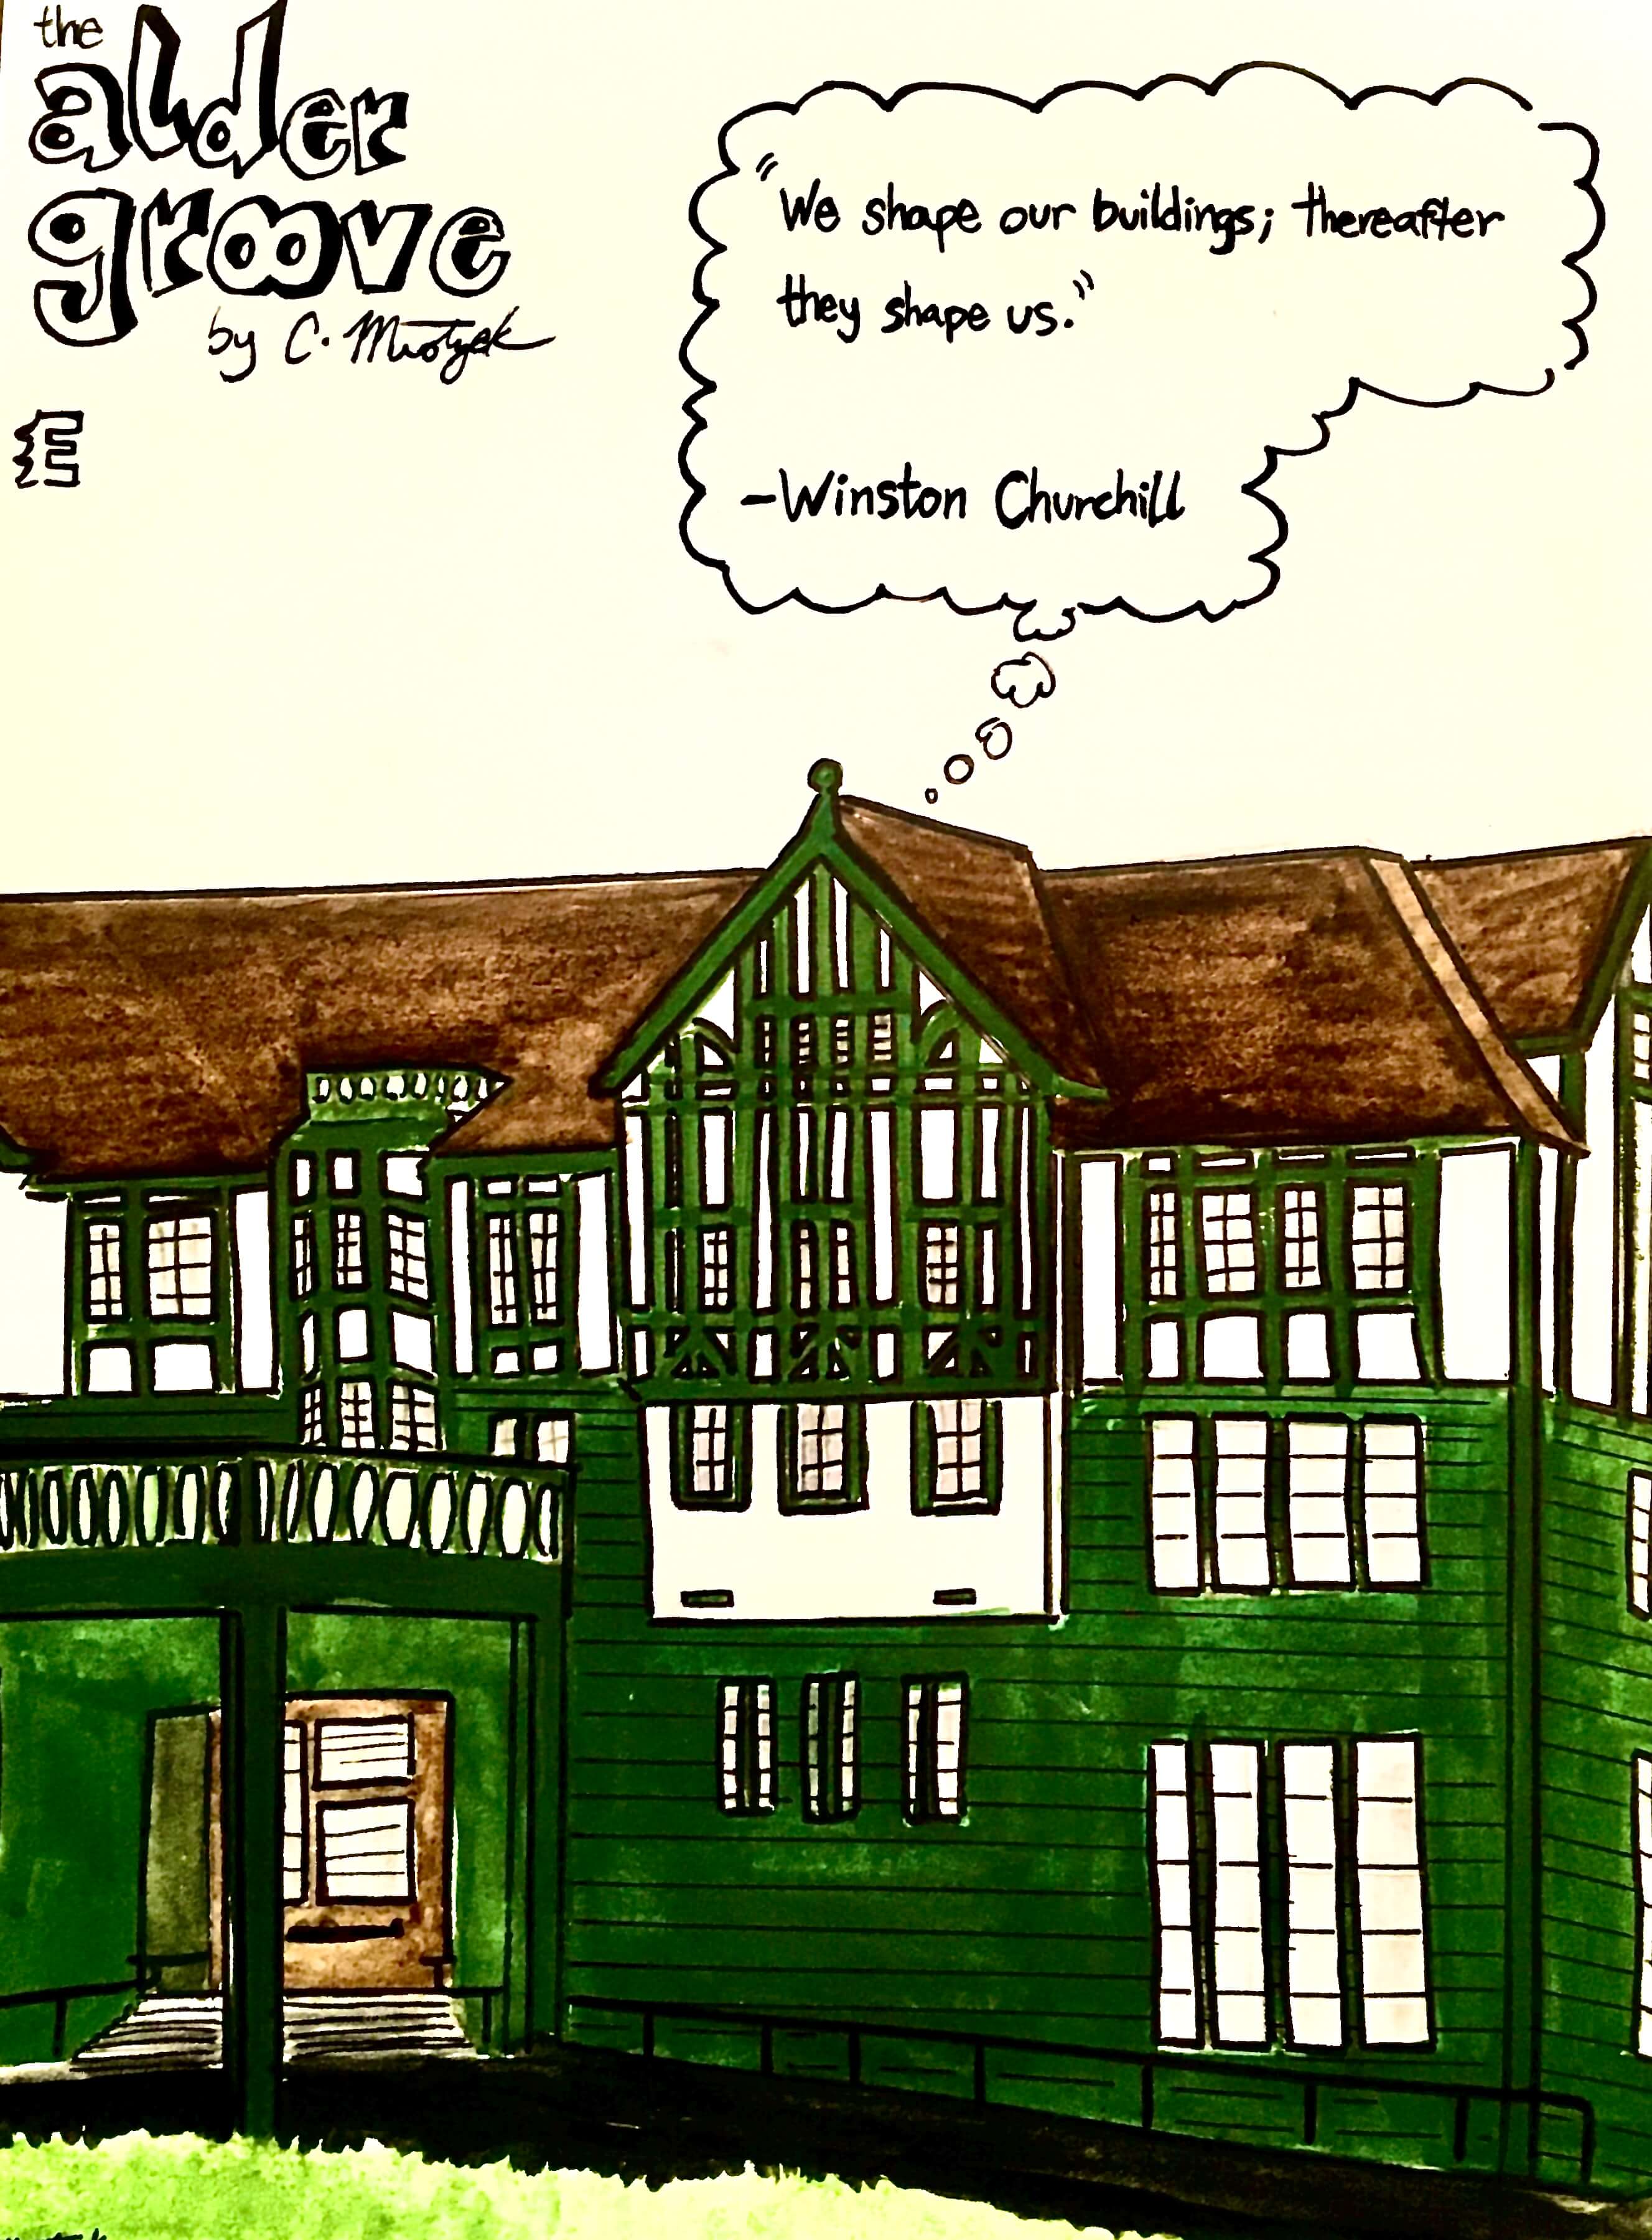 the
alder
groove
by C. Mrotzek
"We shape our buildings; thereafter
they shape us."
-Winston Churchill